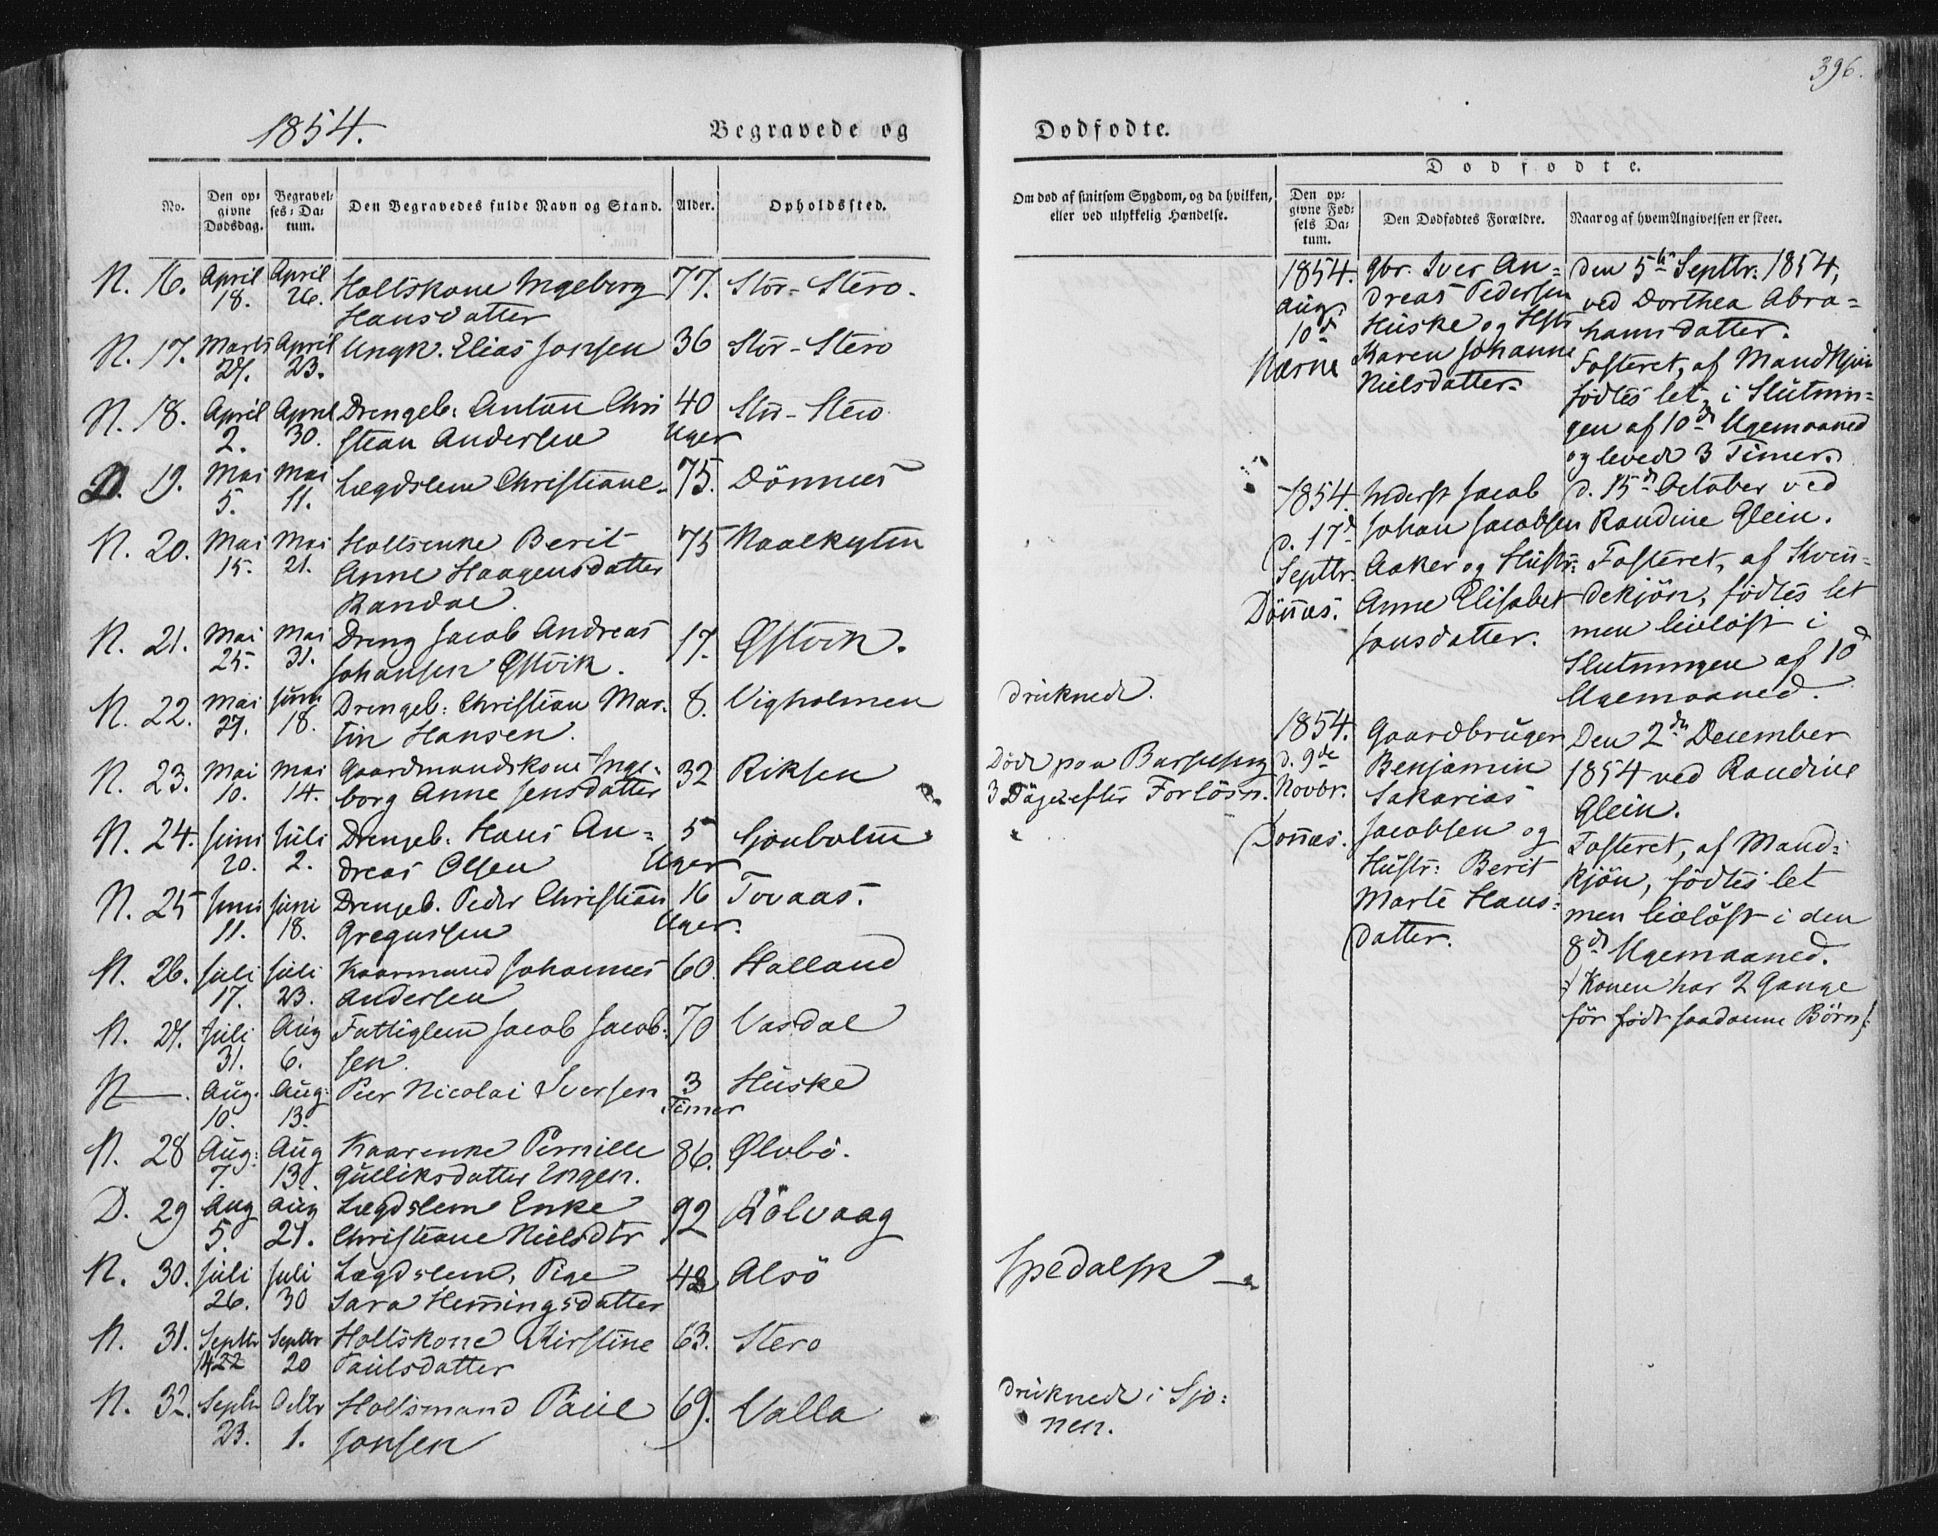 396.
1854.
Begravede og
Dødfødte.
No.
Den opgivne Dødsdag.
Begravelses-Datum.
Den Begravedes fulde Navn og Stand.
Alder.
Opholdssted.
Om død af smitsom Sygdom, og da hvilken, eller ved ulykkelig Hændelse.
Dødfødte.
Den opgivne Fødsels Datum.
Den Dødfødtes Forældre.
Naar og af hvem Angivelsen er skeet.
N. 16. April 18. April 26. Holtskone Ingeborg 77. Stor-Stero.
Hansdatter
N. 17. Marts 27. April 23. Ungk. Elias Jonsen 36 Stor-Stero
N. 18. April 2. April 30. Drengeb: Anton Chri 40 Uger Stor-Stero
stean Andersen
D. 19. Mai 5. Mai 11. Lægdslem Christiane 75. Dönnes
N. 20. Mai 15. Mai 21. Holtsenke Berit 75
Anne Haagensdatter
Randal.
N. 21. Mai 25. Mai 31. Dreng Jacob Andreas 17. Østvik.
Johansen Østvik.
N. 22. Mai 27. Juni 18. Drengeb: Christian Mar- 8. Vigholmen druknede.
tin Hansen.
N. 23. Mai 10. Mai 14. Gaardmandskone Inge- 32 Riksen Døde paa Barselseng
borg Anne Jensdatter 3 Dage efter Forlösn.
N. 24. Juni 20. Juli 2. Drengeb. Hans An= 5 Uger Sjonbotn
dreas Olsen
N. 25 Juni 11. Juni 18. Drengeb. Peder Christian 16 Uger. Tovaas.
Gregusen
N. 26. Juli 17. Juli 23. Kaarmand Johannes 60. Halland
Andersen
N. 27. Juli 31. Aug 6. Fattiglem Jacob Jacob- 70 Vasdal
sen.
N — . Aug. 10. Aug. 13. Peer Nicolai Iversen 3 Timer Huske
N. 28 Aug: 7. Aug 13. Kaarenke Pernille 86. Ølvbö.
Gulliksdatter Engen.
D. 29 Aug 5. Aug 27. Lægdslem Enke 92 Kölvaag
Christiane Nielsdtr
N. 30. Juli 26. Juli 30 Lægdslem, Pige 48 Alsö Spedalsk
Sara Hemingsdatter
N. 31. Septbr 22 Septbr 20 Holtskone Kirstine 63. Stero
Paulsdatter
N. 32. Septbr 23. Octbr 1. Holtsmand Paul 69. Valla druknede i Sjo=
Jonsen nen.
1854. Aug. 10d Næsne
Gbr. Iver An=
dreas Pedersen
Huske og Hstr
Karen Johanne
Nielsdatter.
Den 5te Septbr: 1854,
ved Dorthea Abra=
hamsdatter.
Fosteret, af Mandkjön
födtes let, i Slutnin=
gen af 10de Ugemaaned
og levede 3 Timer.
1854. d. 17d Septbr. Dönnæs.
Inderst Jacob
Johan Jacobsen
Aaker og Hustr:
Anne Elisabet
Jonsdatter.
d. 15de October ved
Randine Glein.
Fosteret, af Kvin=
dekjön, födtes let
men livlöst i
Slutningen af 10d
Ugemaaned.
1854. d. 9de Novbr. Dönnæs.
Gaardbruger
Benjamin
Sakarias
Jacobsen og
Hustr: Berit
Marte Hans=
datter.
Den 2den December
1854 ved Randine
Glein.
Fosteret, af Mand=
kjön, födtes let
men livlöst i den
8de Ugemaaned.
/: Konen har 2 Gange
för födt saadanne Börn :/